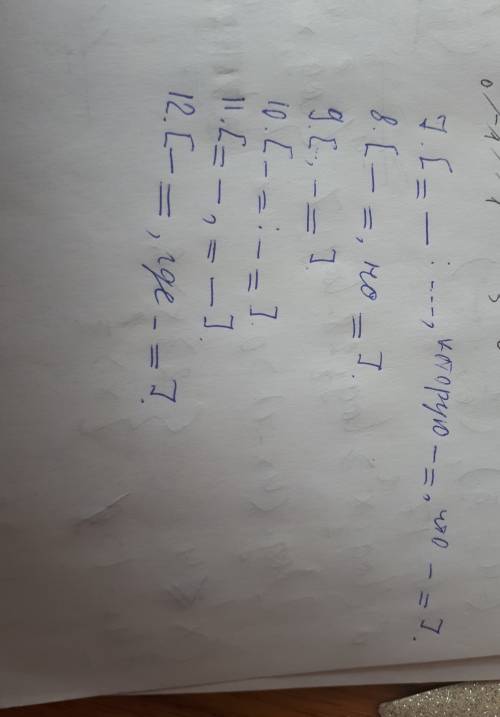 7. [= — : ...., которую — =, что — = ].
8. [ — =, но = ].
9. [.., — = ]
10. [ — = : — = ].
11. [= —, = — ].
12. [ — =, где — = ].